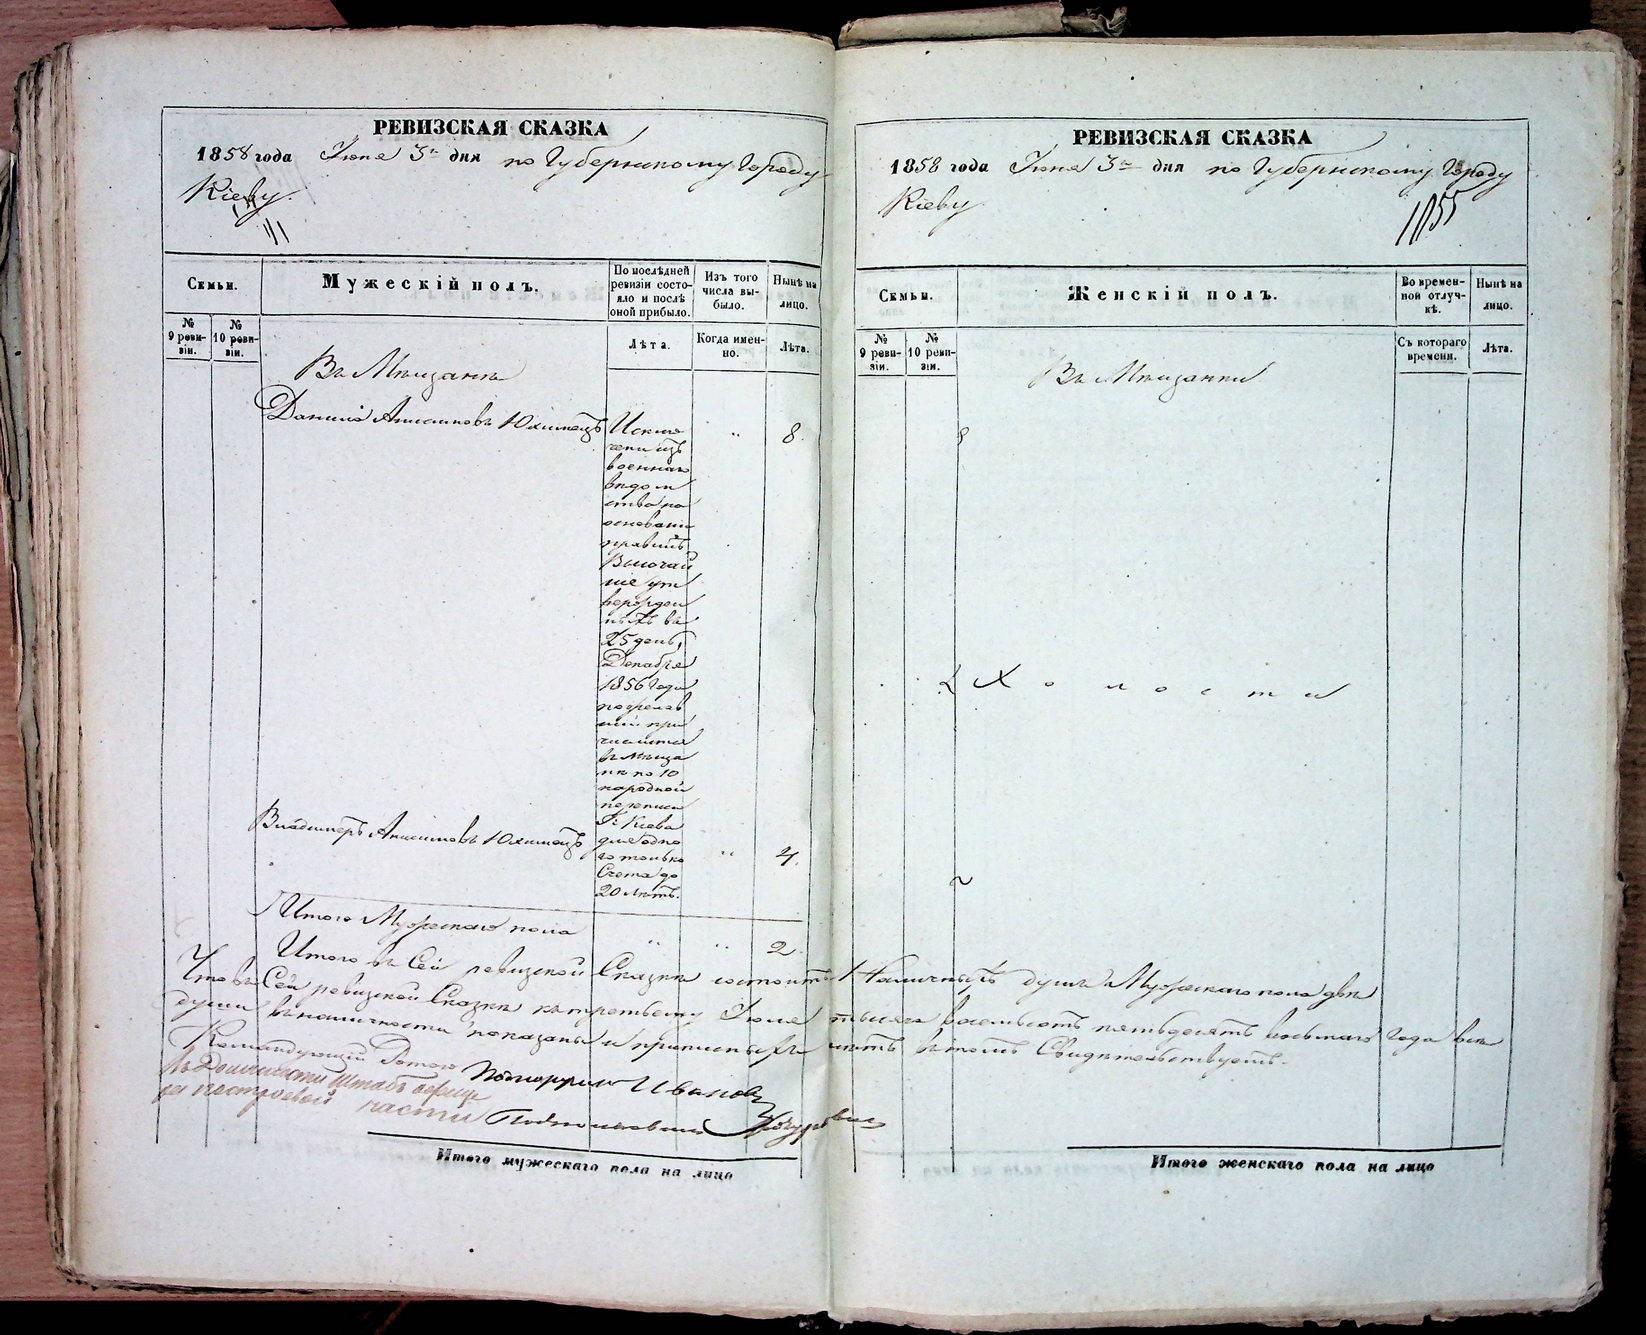 РЕВИЗСКАЯ СКАЗКА
1858 года Іюля 3го дня по Губернскому Городу
Кіеву.
Семьи.
Мужескій полъ.
По послѣдней ревизіи состояло и послѣ оной прибыло.
Изъ того числа выбыло.
Нынѣ на лицо.
№ 9 ревизіи.
№ 10 ревизіи.
Лѣта.
Когда именно.
Лѣта.
Въ Мѣщане
Данило Анисимовъ Юхимецъ
Исклю
чены изъ
военнаго
вѣдом
ства на
основаніи
правилъ
Высочай
ше ут
вержден
ныхъ въ
25 день
Декабря
1856 года
при
въ Мѣща
не по 10
народной
переписи
Г. Кіева
для одно
го только
Счета до
20 лѣтъ.
" 8.
Владимеръ Анисимовъ Юхимецъ
" 4.
Итого Мужескаго пола " " 2.
РЕВИЗСКАЯ СКАЗКА
1858 года Іюля 3го дня по Губернскому Городу
Кіеву
1055
Семьи.
Женскій полъ.
Во временной отлучкѣ.
Нынѣ на лицо.
№ 9 ревизіи.
№ 10 ревизіи.
Съ котораго времени.
Лѣта.
Въ Мѣщанки
Холосты
Итого въ Сей ревизской Сказкѣ состоитъ Наличныхъ душъ Мужескаго пола двѣ
Что въ Сей ревизской Сказкѣ къ третьему Іюля тысяча восемьсотъ пятьдесятъ восьмаго года все
души въ наличности показаны и прописныхъ нѣтъ въ томъ Свидѣтельствуетъ.
Командующій Ротою Ивановъ
въ Должности Штабъ офицера
за нестроевой части Подполковникъ
Итого мужескаго пола на лицо
Итого женскаго пола на лицо